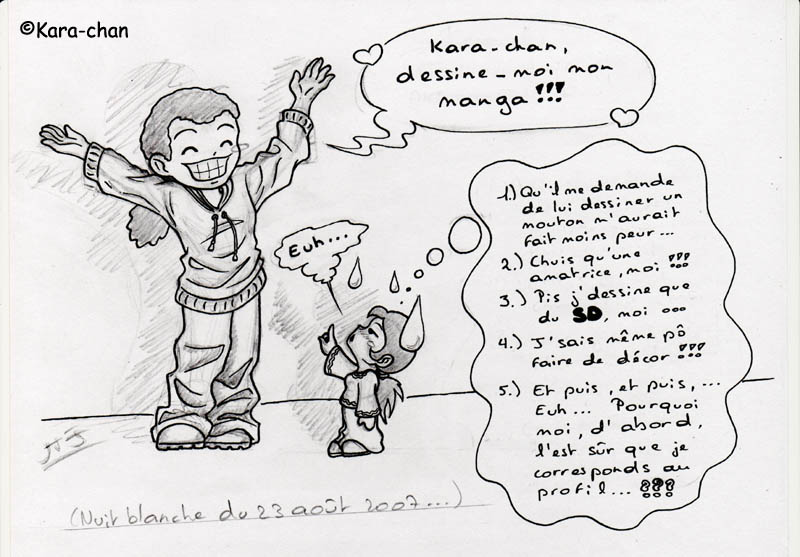 ©Kara-chan
Kara-chan,
dessine-moi mon
manga!!!
Euh...
1.) Qu'il me demande
de lui dessiner un
mouton m'aurait
fait moins peur...
2.) Chuis qu'une
amatrice, moi !!!
3.) Pis j'dessine que
du SD, moi ...
4.) J'sais même pô
faire de décor !!!
5.) Et puis, et puis, ...
Euh... Pourquoi
moi, d'abord,
l'est sûr que je
corresponds au
profil... ???
(Nuit blanche du 23 août 2007...)